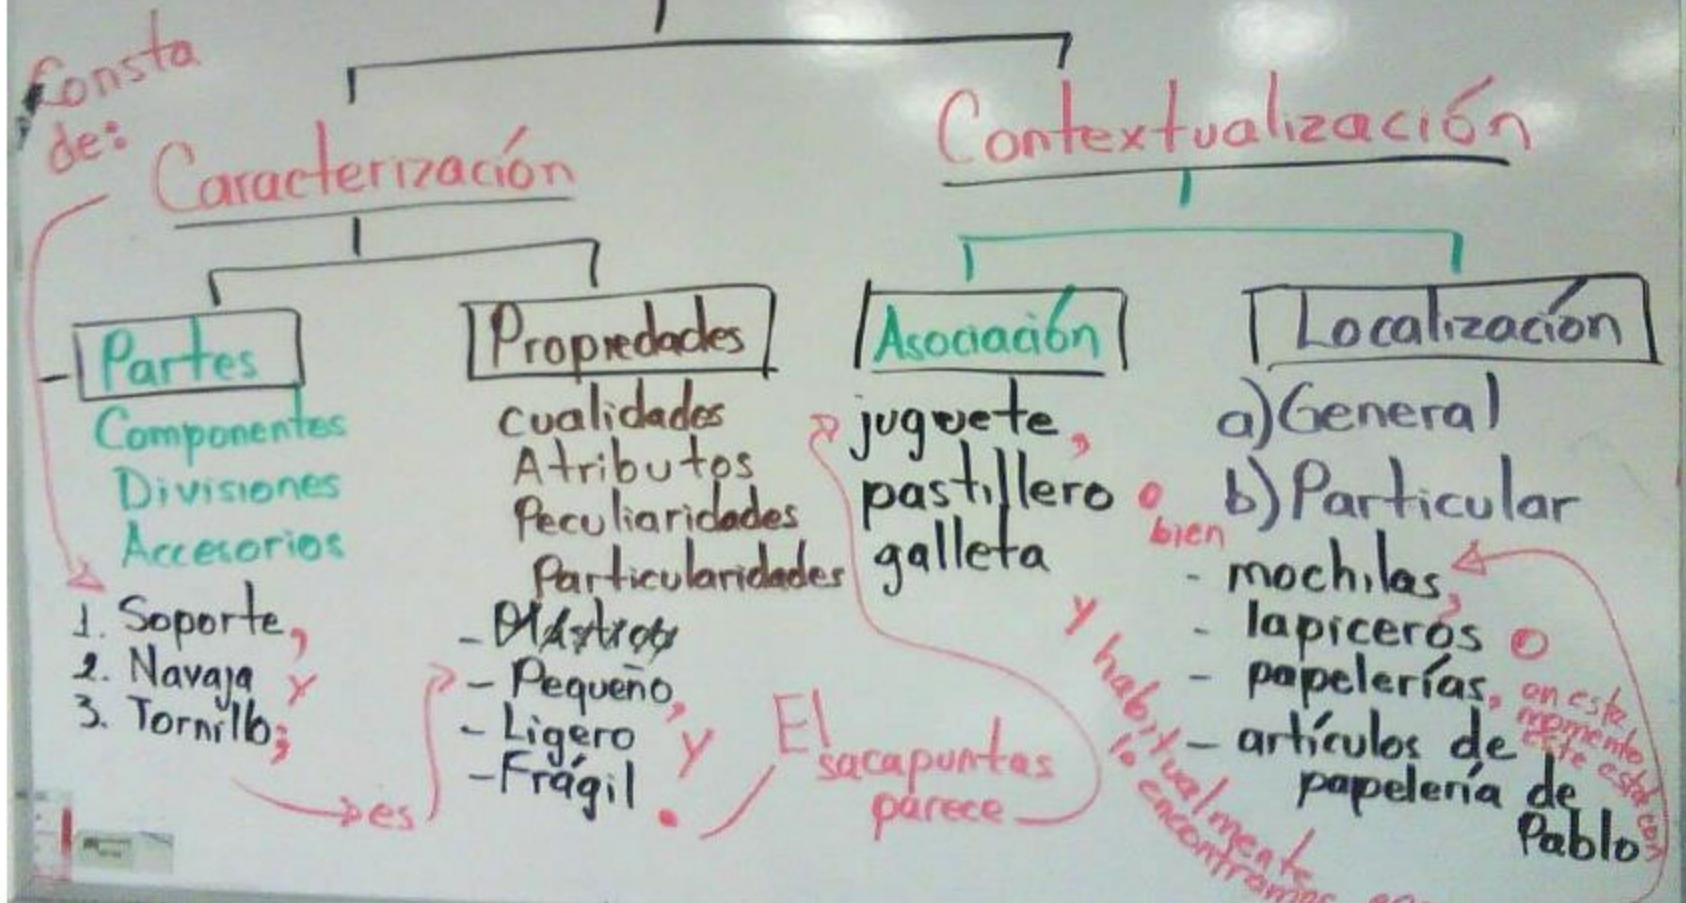 Consta
de:
Caracterización
Contextualización
Partes
Componentes
Divisiones
Accesorios
1. Soporte,
2. Navaja y
3. Tornillo;
es
Propiedades
cualidades
Atributos
Peculiaridades
Particularidades
- Pequeño, y
- Ligero
- Frágil.
El
sacapuntas
parece
Asociación
juguete,
pastillero o
bien
galleta
y habitualmente
lo encontramos
Localización
a) General
b) Particular
- mochilas,
- lapiceros o
- papelerías, en este
momento
este está con
- artículos de
papelería de
Pablo